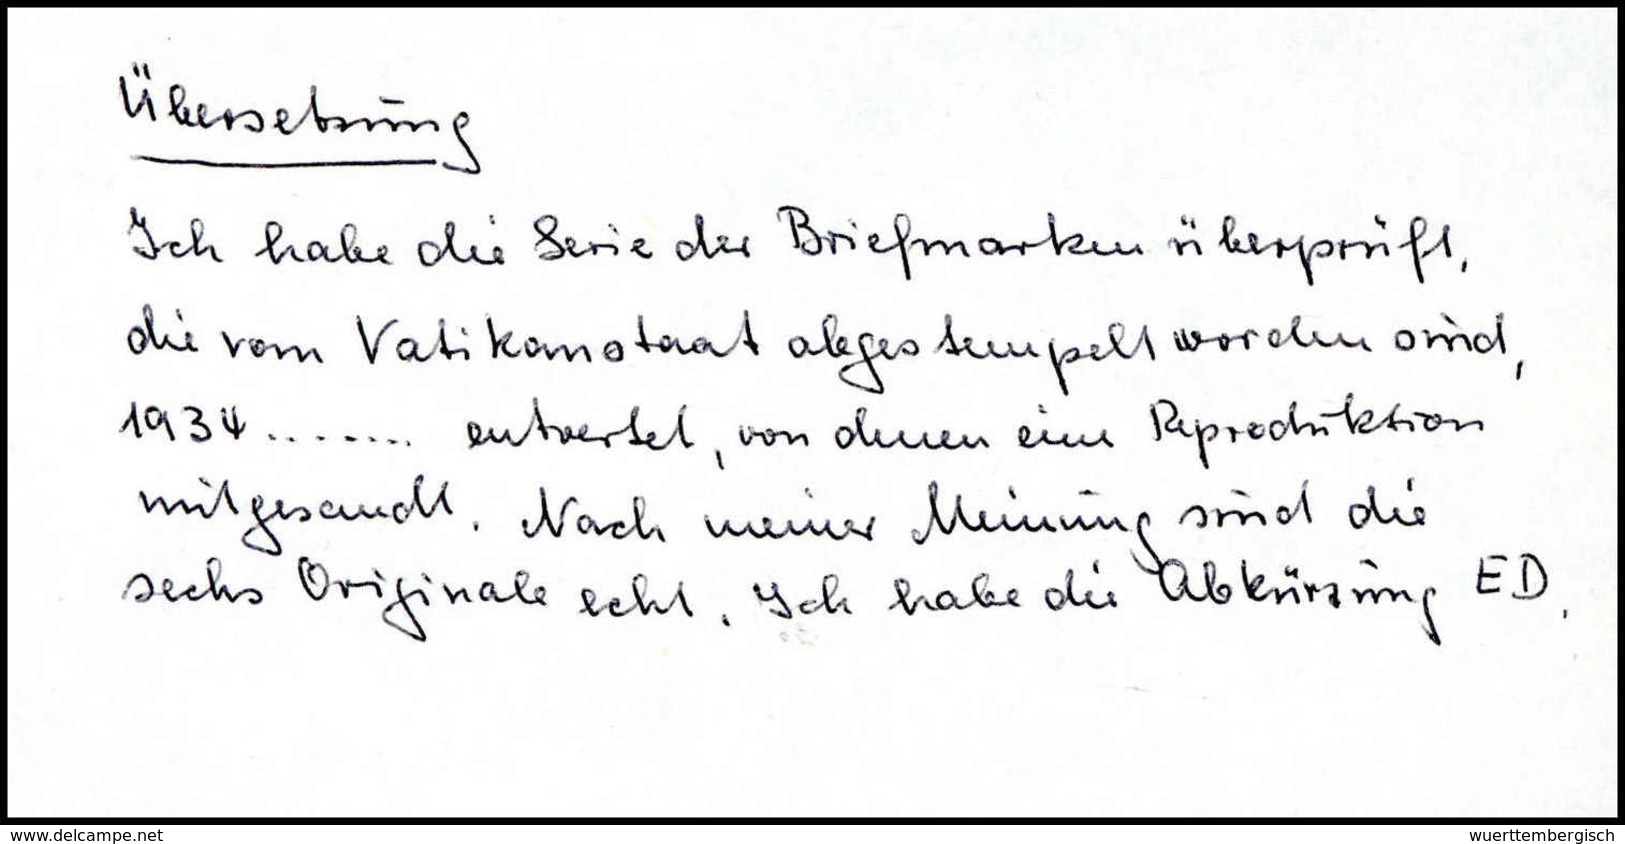 Übersetzung
Ich habe die Serie der Briefmarken überprüft,
die vom Vatikanstaat abgestempelt worden sind,
1934........ entwertet, von denen eine Reproduktion
mitgesandt. Nach meiner Meinung sind die
sechs Originale echt. Ich habe die Abkürzung ED.
www.delcampe.net
wuerttembergisch